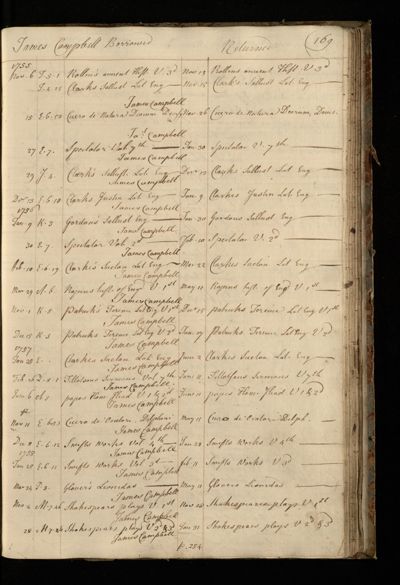 James Campbell Borrowed Returned 169
1755
Nov. 6 F.5.1 Rollins ancient Hist. V 3d Nov 13 Rollins ancient Hist. V 3d
Clarks Sallust Lat Eng Nov 15 Clark's Sallust Lat Eng
James Campbell
15 E.6.50 Cicero de Natura Deorum 26 Cicero de Natura Deorum,
Jas. Campbell
27 E.7. Spectator Vol 7th Jan 30 Spectator V. 7th
James Campbell
29 J.4. Clark's Sallust. Lat. Eng Decr 13 Clarks Sallust Lat Eng
James Campbell
Decr 13 E.6.10 Clarks Justin Lat Eng Jan. 9 Clarkes Justin Lat Eng
1756 James Campbell
Jan. 9 K.3 Gordons Sallust Eng Jan 30 Gordons Sallust Eng
James Campbell
30 E.7. Spectator Vol. 2d Feb. 10 Spectator V. 2d
James Campbell
Feb. 10 E.6.19 Clarkes Sueton Lat Eng Mar 22 Clarkes Sueton Lat Eng
James Campbell
Mar 29 Rapins hist. of Eng V 1st May 10 Rapins hist. of Eng V 1st
James Campbell
Nov. 1 K.5 Patricks Terence Lat Eng V 1st Decr 15 Patricks Terence Lat Eng V 1st
James Campbell
Dec 15 K.5 Patricks Terence Lat Eng V 2d Jan 17 Patricks Terence Lat Eng V 2d
1757 James Campbell
Jan 28 E. Clarkes Sueton Lat Eng June 2 Clarkes Sueton Lat Eng
James Campbell
Feb. 5 D.2.1 Tillotsons Sermons V 7th June 11 Tillotsons Sermons V 7th
James Campbell
popes Hom. Iliad V 1 & 2d popes Hom. Iliad V 1 & 2d
James Campbell
Nov 11 E.6.23 Cicero de Orator. Delphini May 11 Cicero de Orator. Delph.
James Campbell
Dec 2 E.6.12 Swifts Works Vol 4th Jan 20 Swifts Works V 4th
1758 James Campbell
Jan 20 E.6.11 Swifts Works Vol. 3d Feb. 11 Swifts Works V 3d
James Campbell
Mar 24 D.2. Glovers Leonidas May 11 Glovers Leonidas
James Campbell
Nov 2 M.7.26 Shakespears plays V 1st Nov 28 Shakespeares plays V 1st
James Campbell
28 M.7.26 Shakespears plays V 2d & 3d Jan 31 Shakespears plays V 2d & 3d
James Campbell
p. 254